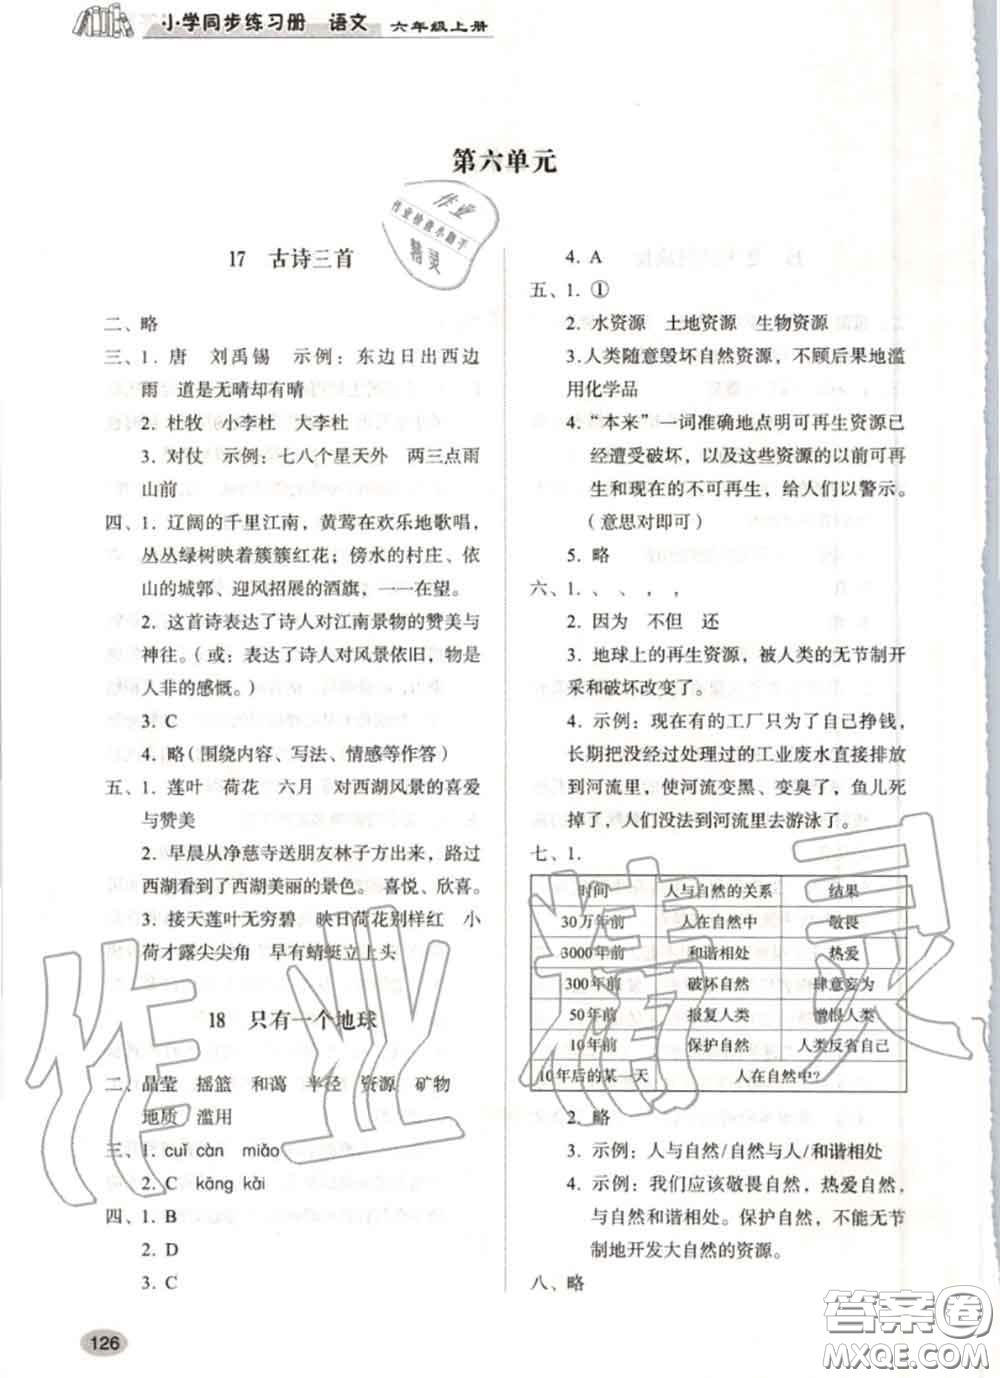 小学同步练习册 语文 六年级上册
第六单元
作业
作业检查小助手
精灵
17 古诗三首
二、略
三、1. 唐 刘禹锡 示例：东边日出西边
雨 道是无晴却有晴
2. 杜牧 小李杜 大李杜
3. 对仗 示例：七八个星天外 两三点雨
山前
四、1. 辽阔的千里江南，黄莺在欢乐地歌唱，
丛丛绿树映着簇簇红花；傍水的村庄、依
山的城郭、迎风招展的酒旗，一一在望。
2. 这首诗表达了诗人对江南景物的赞美与
神往。（或：表达了诗人对风景依旧，物是
人非的感慨。）
3. C
4. 略（围绕内容、写法、情感等作答）
五、1. 莲叶 荷花 六月 对西湖风景的喜爱
与赞美
2. 早晨从净慈寺送朋友林子方出来，路过
西湖看到了西湖美丽的景色。 喜悦、欣喜。
3. 接天莲叶无穷碧 映日荷花别样红 小
荷才露尖尖角 早有蜻蜓立上头
18 只有一个地球
二、晶莹 摇篮 和蔼 半径 资源 矿物
地质 滥用
三、1. cuǐ càn miǎo
2. C kāng kǎi
四、1. B
2. D
3. C
4. A
五、1. ①
2. 水资源 土地资源 生物资源
3.人类随意毁坏自然资源，不顾后果地滥
用化学品
4. “本来”一词准确地点明可再生资源已
经遭受破坏，以及这些资源的以前可再
生和现在的不可再生，给人们以警示。
（意思对即可）
5. 略
六、1. 、 、 ， ，
2. 因为 不但 还
3. 地球上的再生资源，被人类的无节制开
采和破坏改变了。
4. 示例：现在有的工厂只为了自己挣钱，
长期把没经过处理过的工业废水直接排放
到河流里，使河流变黑、变臭了，鱼儿死
掉了，人们没法到河流里去游泳了。
七、1.
时间 人与自然的关系 结果
30万年前 人在自然中 敬畏
3000年前 和谐相处 热爱
300年前 破坏自然 肆意妄为
50年前 报复人类 憎恨人类
10年前 保护自然 人类反省自己
10年后的某一天 人在自然中?
2. 略
3. 示例：人与自然/自然与人/和谐相处
4. 示例：我们应该敬畏自然，热爱自然，
与自然和谐相处。保护自然，不能无节
制地开发大自然的资源。
八、略
126
作业精灵
答案圈
MXQE.COM